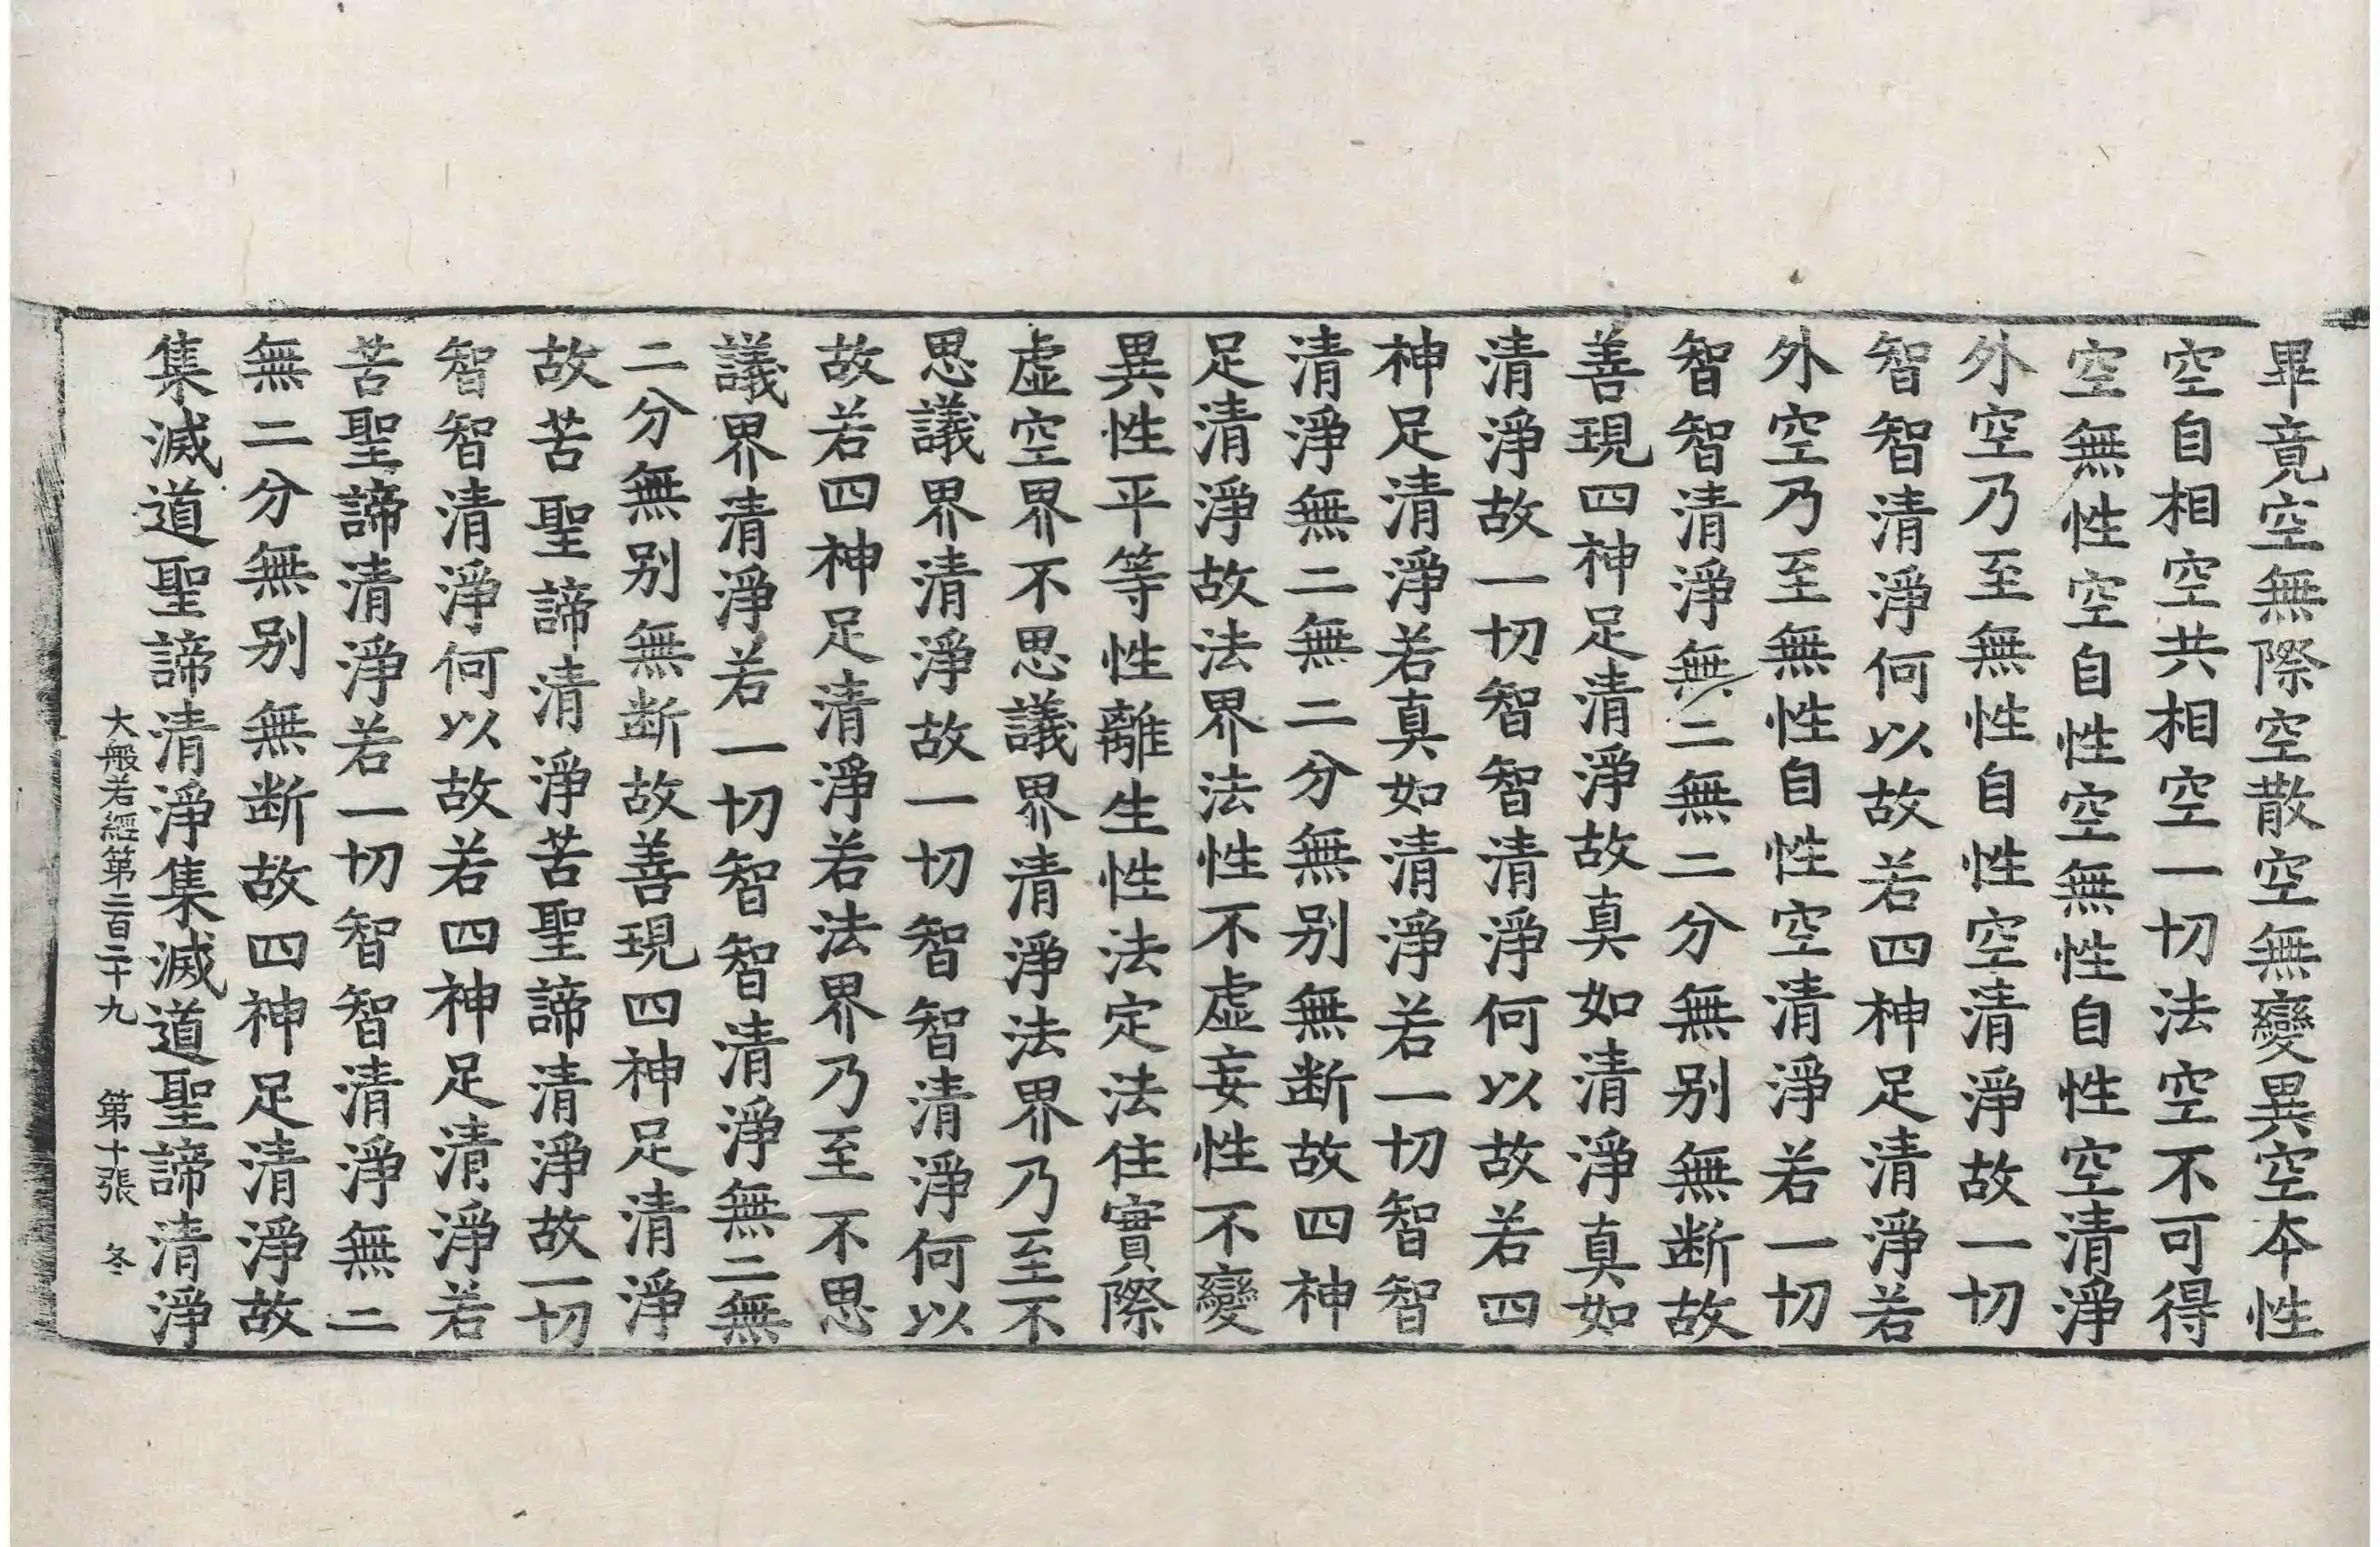 畢竟空無際空散空無變異空本性
空自相空共相空一切法空不可得
空無性空自性空無性自性空清淨
外空乃至無性自性空清淨故一切
智智清淨何以故若四神足清淨若
外空乃至無性自性空清淨若一切
智智清淨無二無二分無別無斷故
善現四神足清淨故真如清淨真如
清淨故一切智智清淨何以故若四
神足清淨若真如清淨若一切智智
清淨無二無二分無別無斷故四神
足清淨故法界法性不虛妄性不變
異性平等性離生性法定法住實際
虛空界不思議界清淨法界乃至不
思議界清淨故一切智智清淨何以
故若四神足清淨若法界乃至不思
議界清淨若一切智智清淨無二無
二分無別無斷故善現四神足清淨
故苦聖諦清淨苦聖諦清淨故一切
智智清淨何以故若四神足清淨若
苦聖諦清淨若一切智智清淨無二
無二分無別無斷故四神足清淨故
集滅道聖諦清淨集滅道聖諦清淨
大般若經第二百二十九 第十張 冬